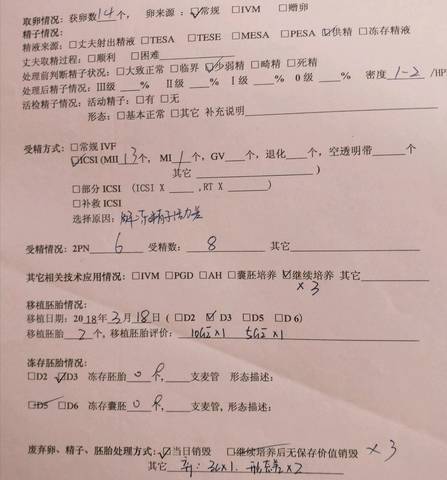 取卵情况: 获卵数14个, 卵来源:☑常规 □IVM □赠卵
精子情况:
精液来源: □丈夫射出精液 □TESA □TESE □MESA □PESA ☑供精 □冻存精液
丈夫取精过程: □顺利 □困难
处理前判断精子状况: □大致正常 □临界 ☑少弱精 □畸精 □死精
处理后精子情况: III级 ___% II级 ___% I级 ___% 0级 ___% 密度 1-2 /HP
活检精子情况: 活动精子: □有 □无
形态: □基本正常 □其它 补充说明
受精方式: □常规 IVF
☑ICSI (MII 13个, MI 1个, GV___个, 退化___个, 空透明带___个
其它 )
□部分 ICSI (ICSI X ___ ,RT X ___)
□补救 ICSI
选择原因: 解冻精子活力差
受精情况: 2PN 6 受精数: 8 其它
其它相关技术应用情况: □IVM □PGD □AH □囊胚培养 ☑继续培养 其它
×3
移植胚胎情况:
移植日期: 2018年3月18日 ( □D2 ☑D3 □D5 □D 6)
移植胚胎 2 个, 移植胚胎评价: 10G2×1 5G2×1
冻存胚胎情况:
□D2 ☑D3 冻存胚胎 0 个, ___支麦管 形态描述:
□D5 □D6 冻存囊胚 0 个, ___支麦管, 形态描述:
废弃卵、精子、胚胎处理方式: ☑当日销毁 □继续培养后无保存价值销毁 ×3
其它 ×1. ×2